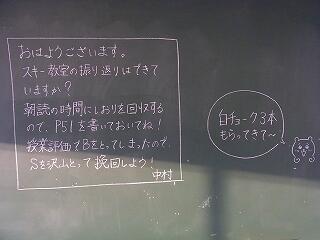 おはようございます。
スキー教室の振り返りはできて
いますか？
朝読の時間にしおりを回収する
ので、P51を書いておいてね！
授業評価でBをとってしまったので、
Sを沢山とって挽回しよう！
中村
白チョーク3本
もらってきて〜